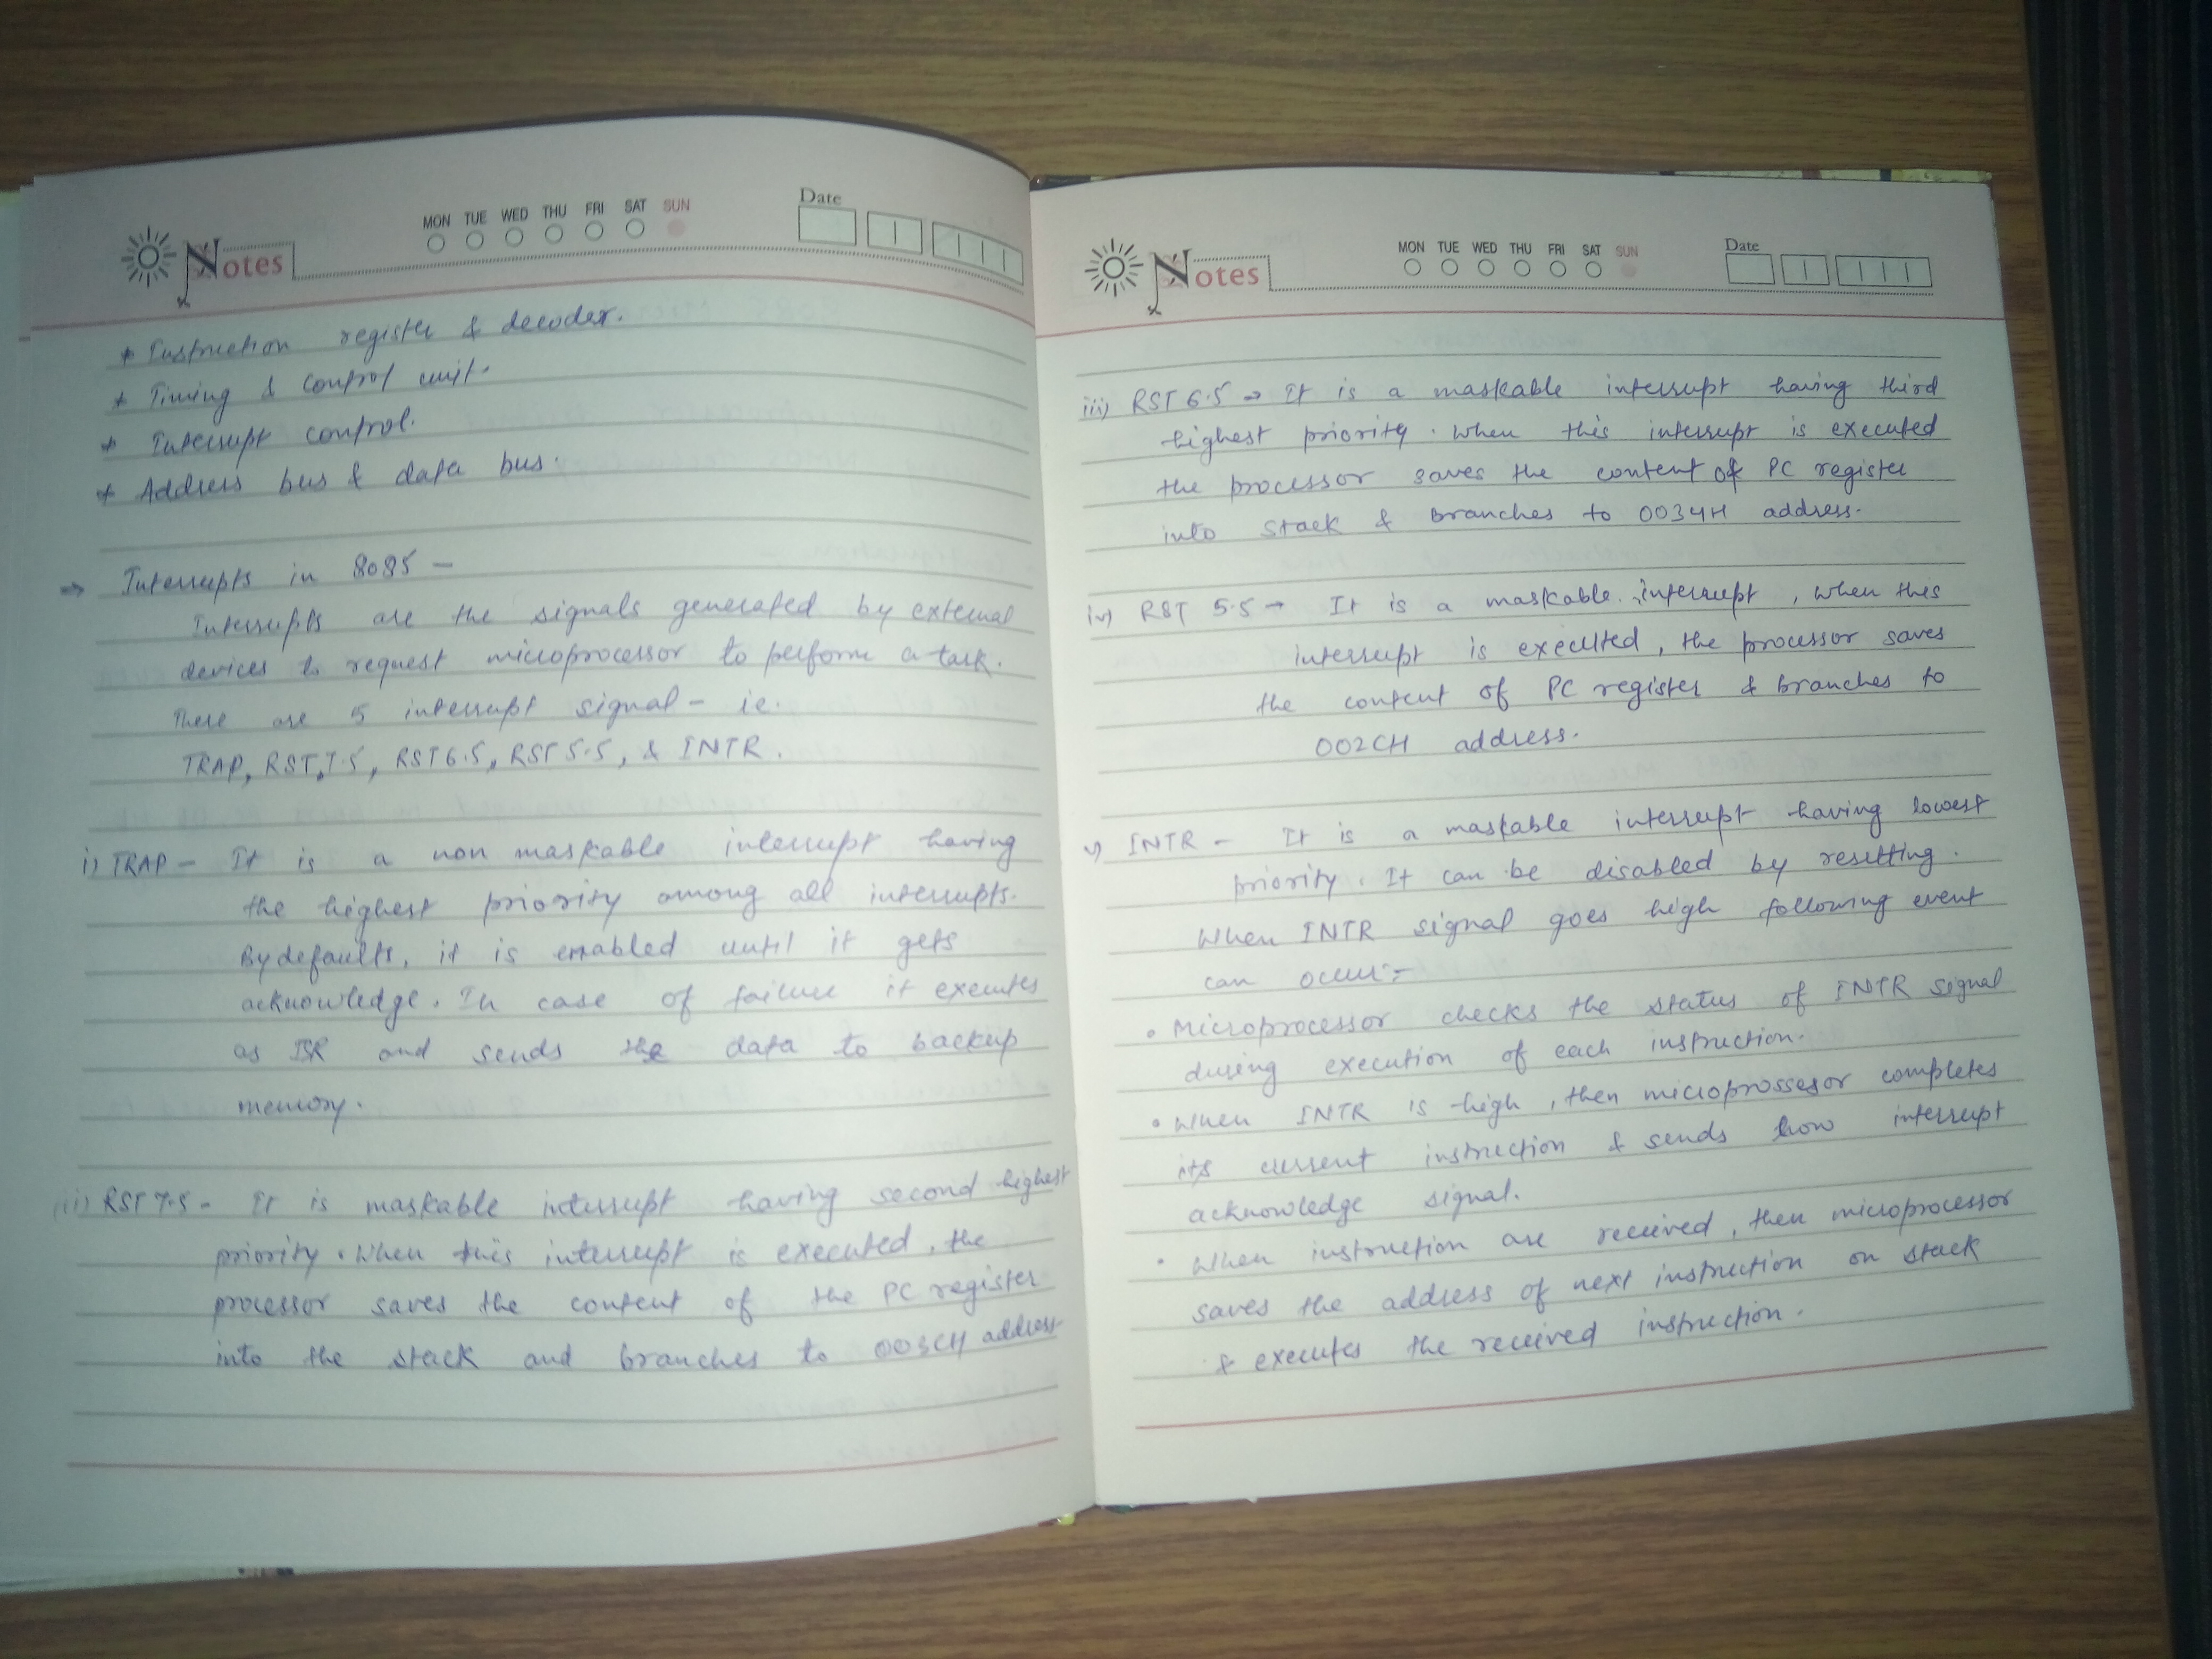 Notes
MON TUE WED THU FRI SAT SUN
Date
* Instruction register & decoder.
* Timing & control unit.
* Interrupt control.
* Address bus & data bus.
⇒ Interrupts in 8085 –
Interrupts are the signals generated by external
devices to request microprocessor to perform a task.
There are 5 interrupt signal – ie.
TRAP, RST 7.5, RST 6.5, RST 5.5, & INTR.
i) TRAP – It is a non maskable interrupt having
the highest priority among all interrupts.
By defaults, it is enabled until it gets
acknowledge. In case of failure it executes
as ISR and sends the data to backup
memory.
ii) RST 7.5 - It is maskable interrupt having second highest
priority. When this interrupt is executed, the
processor saves the content of the PC register
into the stack and branches to 003CH address.
Notes
MON TUE WED THU FRI SAT SUN
Date
iii) RST 6.5 → It is a maskable interrupt having third
highest priority. When this interrupt is executed
the processor saves the content of PC register
into stack & branches to 0034H address.
iv) RST 5.5 → It is a maskable interrupt, when this
interrupt is executed, the processor saves
the content of PC register & branches to
002CH address.
v) INTR - It is a maskable interrupt having lowest
priority. It can be disabled by resetting.
When INTR signal goes high following event
can occur:-
• Microprocessor checks the status of INTR signal
during execution of each instruction.
• When INTR is high, then microprossesor completes
its current instruction & sends how interrupt
acknowledge signal.
• When instruction are received, then microprocessor
saves the address of next instruction on stack
& executes the received instruction.